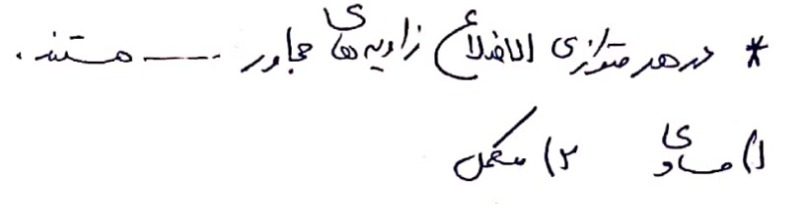 * در هر متوازی الاضلاع زاویه های مجاور ----- هستند.
۱) مساوی ۲) مکمل